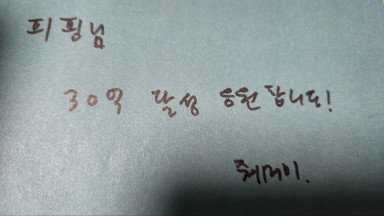 피핑님
30억 달성 응원합니다!